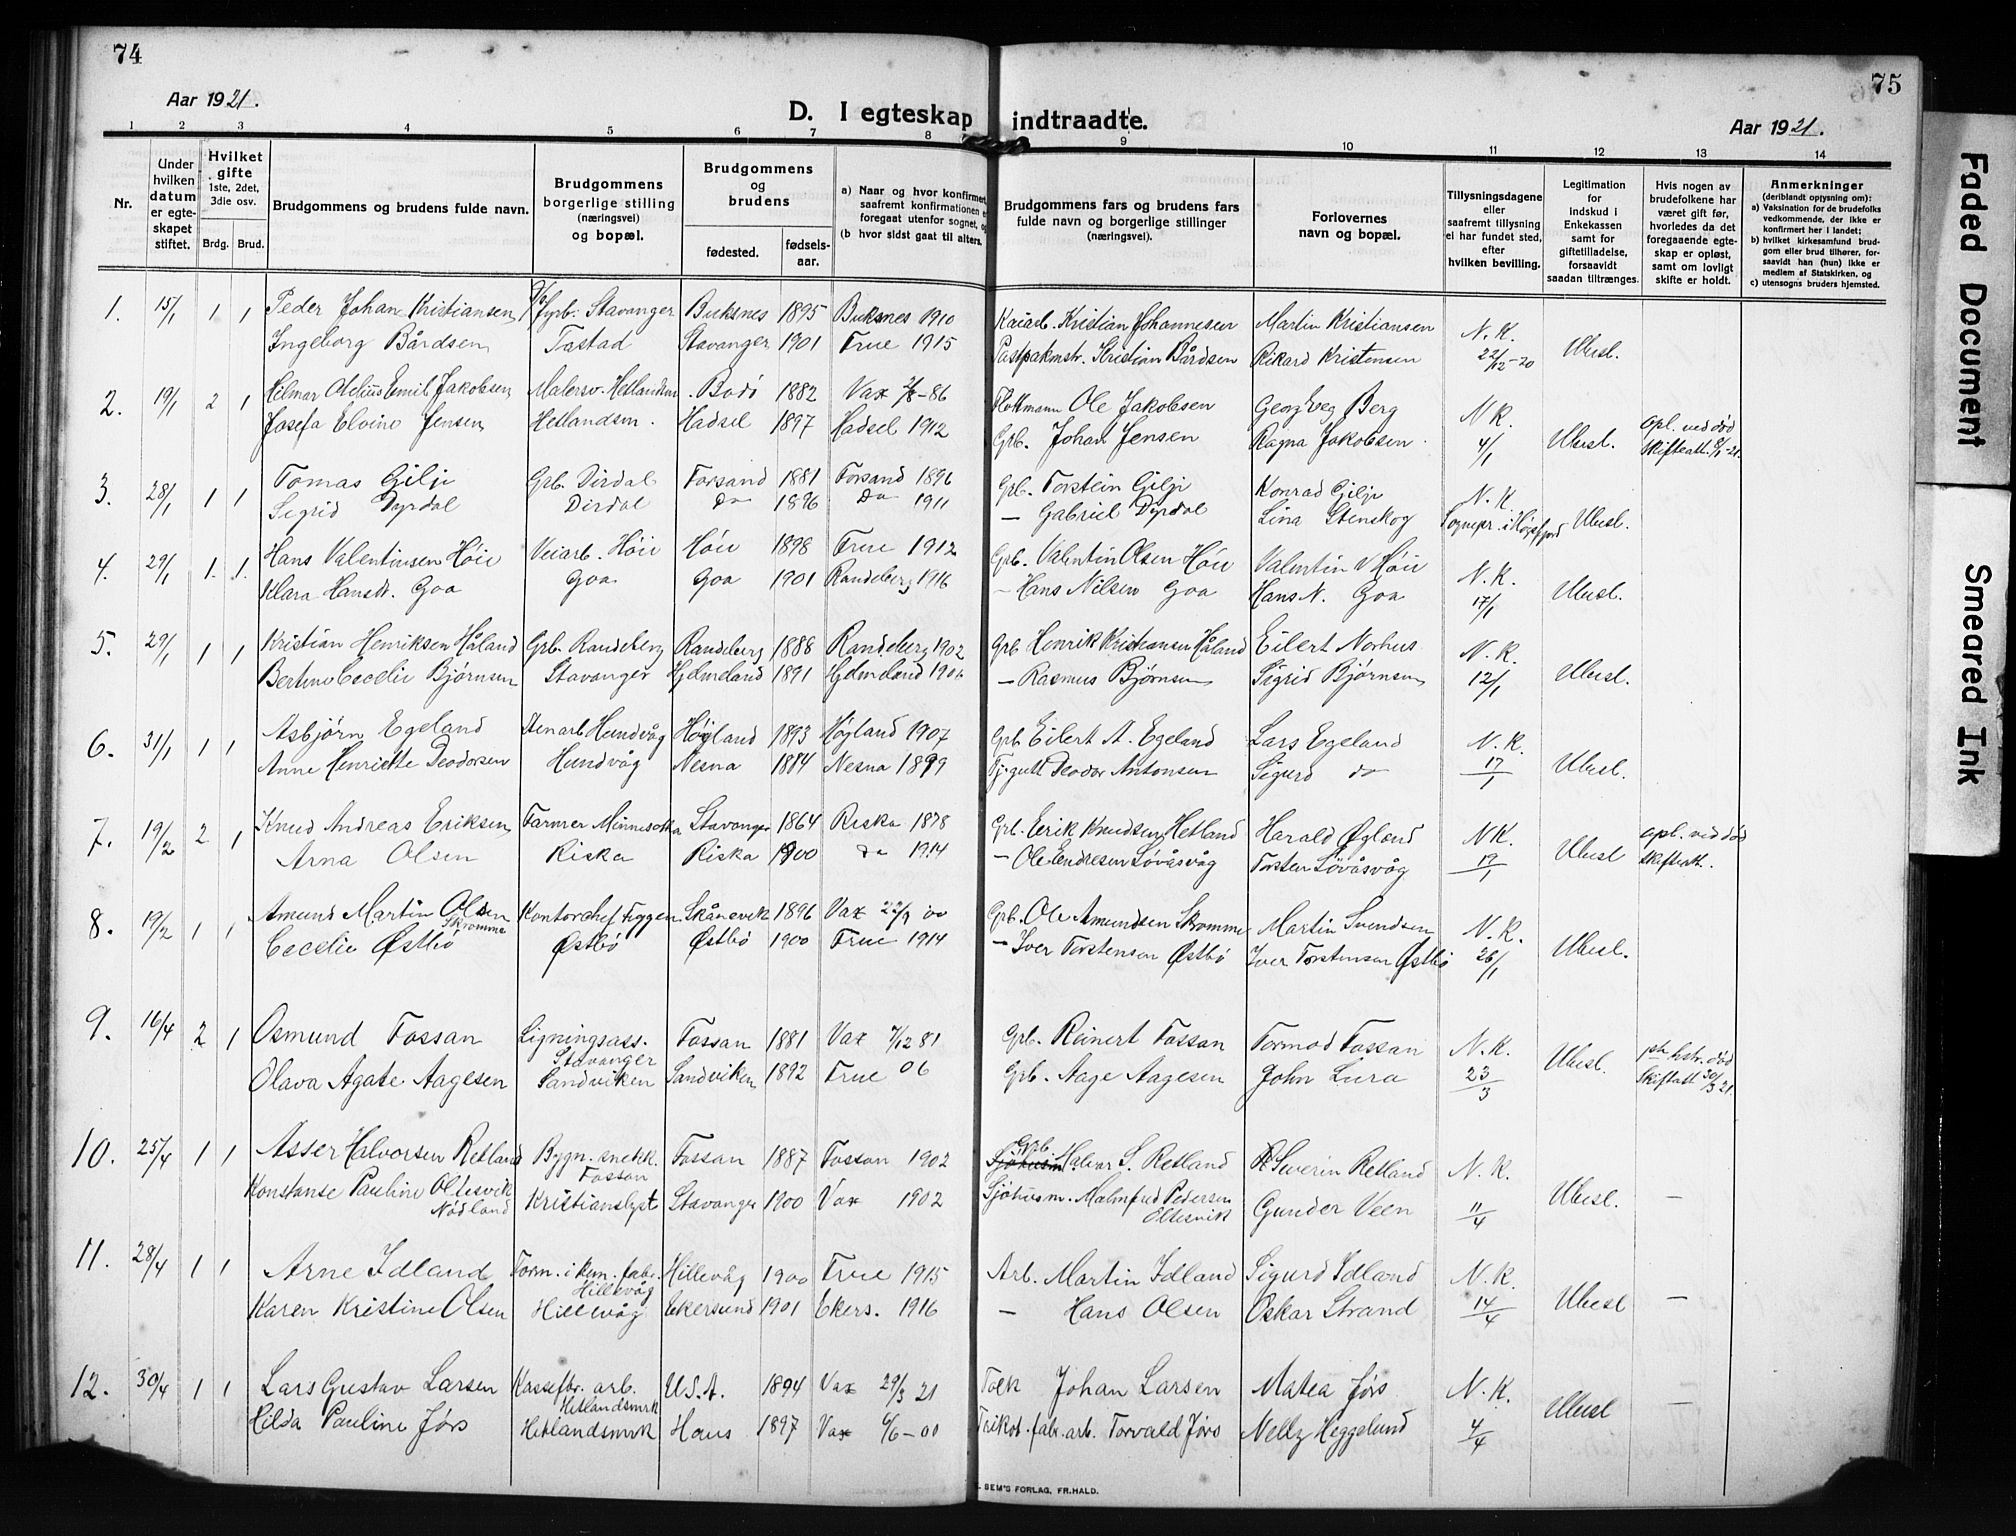 74
75
Aar 1921.
D. I egteskap indtraadte.
Aar 1921.
1 2 3 4 5 6 7 8 9 10 11 12 13 14
Nr.
Under hvilken datum er egteskapet stiftet.
Hvilket gifte 1ste, 2det, 3die osv.
Brdg. Brud.
Brudgommens og brudens fulde navn.
Brudgommens borgerlige stilling (næringsvei) og bopæl.
Brudgommens og brudens
fødested. fødselsaar.
a) Naar og hvor konfirmert,
saafremt konfirmationen e
foregaat utenfor sognet, og
(b hvor sidst gaat til alters.
Brudgommens fars og brudens fars
fulde navn og borgerlige stillinger
(næringsvei).
Forlovernes
navn og bopæl.
Tillysningsdagene
eller
saafremt tillysning
ei har fundet sted,
efter
hvilken bevilling.
Legitimation
for
indskud i
Enkekassen
samt for
giftetilladelse,
forsaavidt
saadan tiltrænges.
Hvis nogen av
brudefolkene har
været gift før,
hvorledes da det
foregaaende egte-
skap er opløst,
samt om lovligt
skifte er holdt.
Anmerkninger
(deriblandt opjysning om):
a) Vaksination for de brudefolks
vedkommende, der ikke er
konfirmert her i landet;
b) hvilket kirkesamfund brud-
gom eller brud tilhører, for-
saavidt han (hun) ikke er
medlem af Statskirken, og
c) utensogns bruders hjemsted.
1. 15/1 1 1 Peder Johan Kristiansen fyrb. Stavanger Buksnes 1895 Buksnes 1910 Kaiarb. Kristian Johannesen Martin Kristiansen N. K.
Ingeborg Bårdsen Tastad Stavanger 1901 Frue 1915 Kristian Bårdsen Rikard Kristensen 22/12-20 Ubesl.
2. 19/1 2 1 Hilmar Aldius Emil Jakobsen Malersv. Hetlandsm. Bodö 1882 Vax -86 Flottmann Ole Jakobsen Georg Berg N K. opl. ved død
Josefa Elvine Jensen Hetlandsm. Hadsel 1897 Hadsel 1912 Grb. Johan Jensen Ragna Jakobsen 4/1 Ubesl. Skifteatt. 8/1-21.
3. 28/1 1 1 Tomas Gilje Grb. Dirdal Forsand 1881 Forsand 1896 Grb. Torstein Gilje Konrad Gilje N. K.
Sigrid Dyrdal Dirdal do 1896 do 1911 — Gabriel Dyrdal Lina Stenskog Sognepr. i Høgsfjord Ubesl.
4. 29/1 1. 1. Hans Valentinsen Høie Veiarb. Höie Höie 1898 Frue 1912 Grb. Valentin Olsen Höie Valentin V Höie N. K.
Klara Hansdt. Goa Goa Goa 1901 Randeberg 1916 — Hans Nilsen Goa Hans N. Goa 17/1 Ubesl.
5. 29/1 1 1 Kristian Henriksen Håland Grb. Randeberg Randeberg 1888 Randeberg 1902 Grb. Henrik Kristiansen Håland Eilert Norhus N. K.
Bertine Cecelie Bjørnsen Stavanger Hjelmeland 1891 Hjelmeland 1906 — Rasmus Bjørnsen Sigrid Bjørnsen 12/1 Ubesl.
6. 31/1 1 1 Asbjørn Egeland Stenarb Hundvåg Høyland 1893 Høyland 1907 Grb. Eilert A. Egeland Lars Egeland N. K.
Anne Henriette Deodorsen Hundvåg Nesna 1884 Nesna 1899 Deodor Antonsen Sigurd do 17/1 Ubesl.
7. 19/2 2 1 Knud Andreas Eriksen Farmer Minnesotta Stavanger 1864 Riska 1878 Grb. Eerik Knudsen Hetland Harald Øgland N K. opl. ved død
Arna Olsen Riska Riska 1900 do 1914 — Ole Endresen Løvåsvåg Torsten Løvåsvåg 19/1 Ubesl Skifteatt.
8. 19/2 1 1 Amund Martin Olsen Skromme Kontorchef Figgen Skånevik 1896 Vax 22/9 00 Grb. Ole Amundsen Skromme Martin Svendsen N. K.
Cecelie Østbö Østbö Østbö 1900 Frue 1914 — Iver Torstensen Østbö Iver Torstensen Østbö 26/1 Ubesl.
9. 16/4 2 1 Osmund Fossan Ligningsass. Stavanger Fossan 1881 Vax 7/12 81 Grb. Reinert Fossan Tormod Fossan N. K. 1ste hstr. död
Olava Agate Aagesen Sandviken Sandviken 1892 Frue 06 Grb. Aage Aagesen John Lura 23/3 Ubesl. Skifteatt 30/3 21.
10. 25/4 1 1 Asser Halvorsen Retland Bygn. snekk. Fossan Fossan 1887 Fossan 1902 Grb. Halvor S. Retland Severin Retland N. K.
Konstanse Pauline Oltesvik Nødland Kristianslyst Stavanger 1900 Vax 1902 Sjøhusm. Malmfred Pedersen Oltesvik Gunder Veen 11/4 Ubesl. —
11. 28/4 1 1 Arne Idland Form. i kem. fabr. Hillevåg Hillevåg 1900 Frue 1915 Arb. Martin Idland Sigurd Idland N. K.
Karen Kristine Olsen Hillevåg Ekersund 1901 Ekers. 1916 — Hans Olsen Oskar Strand 14/4 Ubesl —
12. 30/4 1 1 Lars Gustav Larsen Kassefbr. arb. Hetlandsmrk U.S.A. 1894 Vax 29/3 21 Tolk Johan Larsen Matea Jørs N. K.
Hilda Pauline Jørs Hetlandsmrk Haus 1897 Vax 6/6-00 Trikot. fabr. arb. Torvald Jørs Nelly Heggelund 4/4 Ubesl —
SEM'S FORLAG, FR.HALD.
Faded Document
Smeared Ink